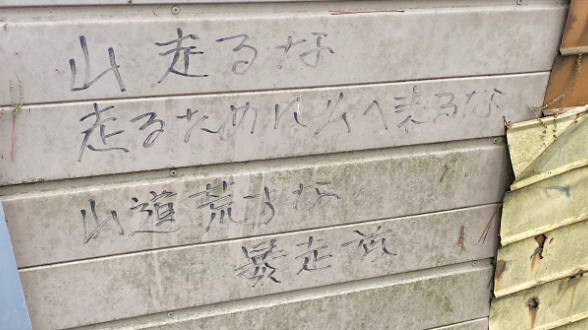 山走るな
走るために山へ来るな
山道荒すな
暴走族